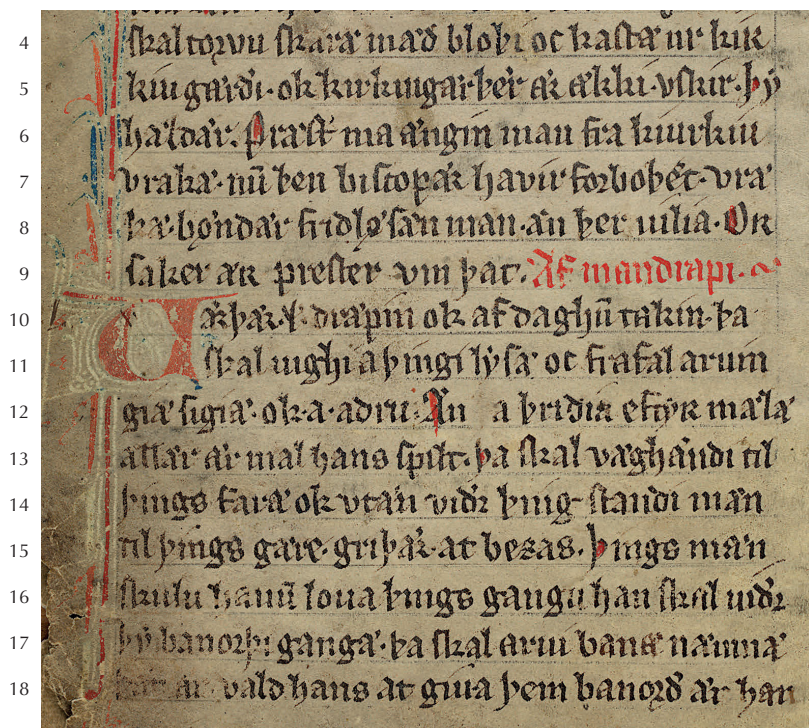 4 skal torvu skæræ mæð bloþi oc kastæ ur kirk
5 kiu garði· ok kirkiugarþer ær æklki· vskir· þy
6 haldær. Præst ma ængin man fra kiurkiu
7 vraka· nū þen biscopær havir forboþet· vræ
8 kæ· böndær friðløsæn man· æn þer uilia· Ok
9 saker ær prester vm þat· Af mandrapi·
10 Varþær· dræpin ok af daghū takin· þa
11 skal uighi a þingi lysæ oc frafal aruin
12 giæ sigiæ· ok· a· aðru· Æn a þriðia eftyr mælæ
13 allær ær mal hans spilt· þa skal væghændi til
14 þings faræ ok vtæn viðr þing standi mæn
15 til þings gære· griþær· at beȝas· þings mæn
16 skulu hanū loua þings gangu han skal uiðr
17 þy banorþi gangæ· þa skal arui banæ næmnæ
18 vald hans at giua þem banorð ær han